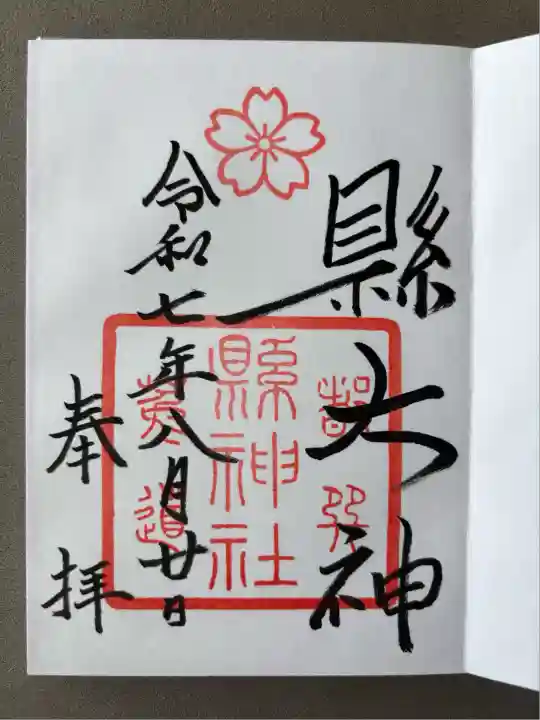 縣大神
令和七年八月廿日
奉拝
都巽
縣神社
菟道